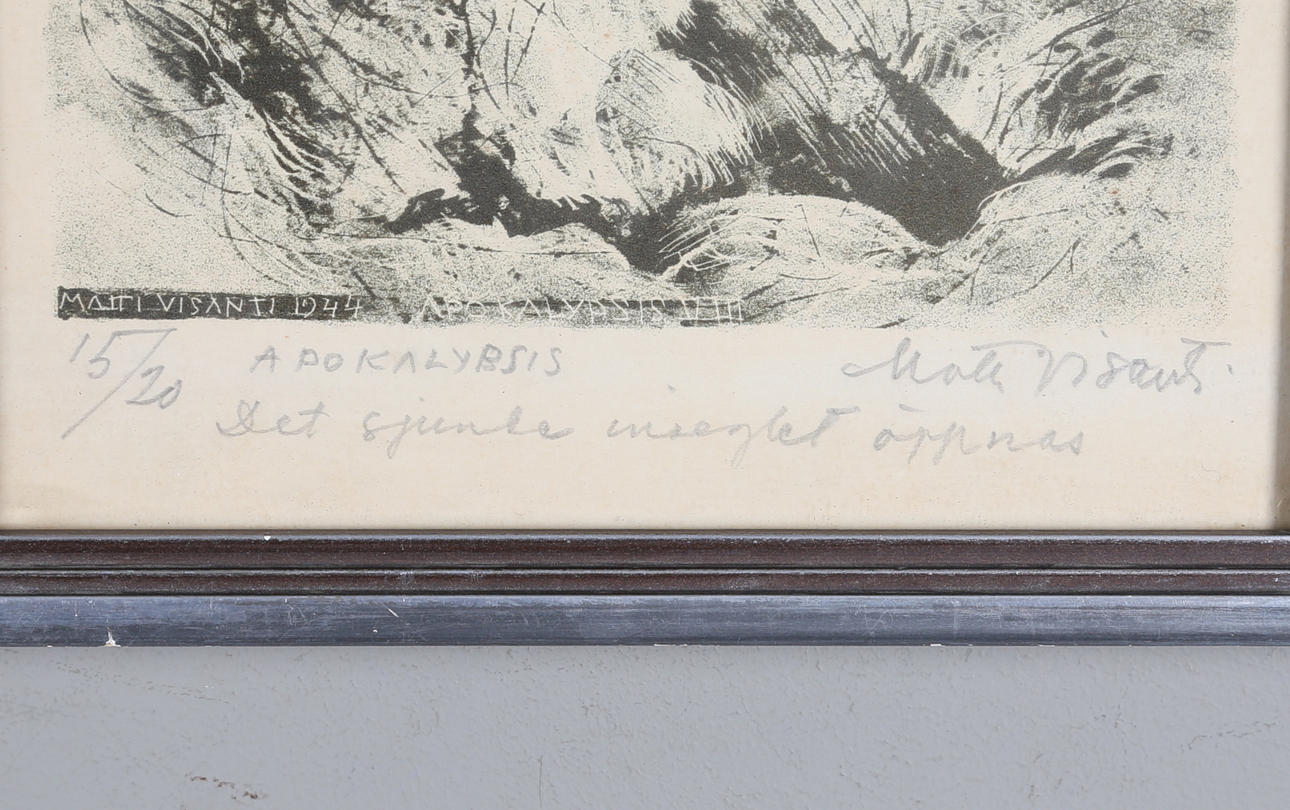 MATTI VISANTI 1944 APOKALYPSIS VIII
15/20 APOKALYPSIS Matti Visanti.
Det sjunde inseglet öppnas